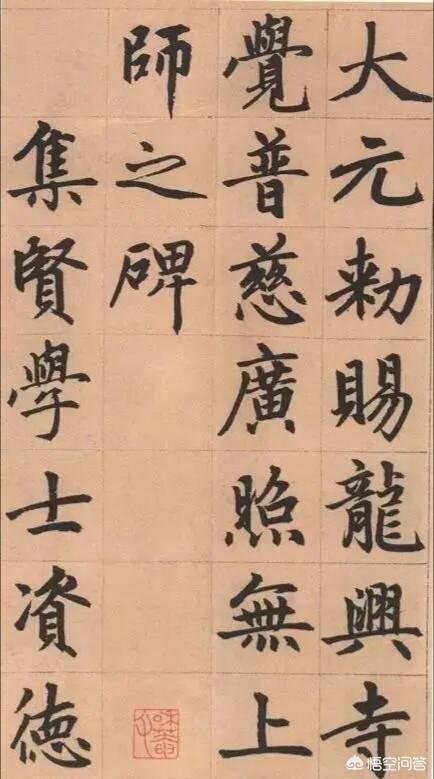 大元勑賜龍興寺
覺普慈廣照無上
師之碑
集賢學士資德
悟空问答